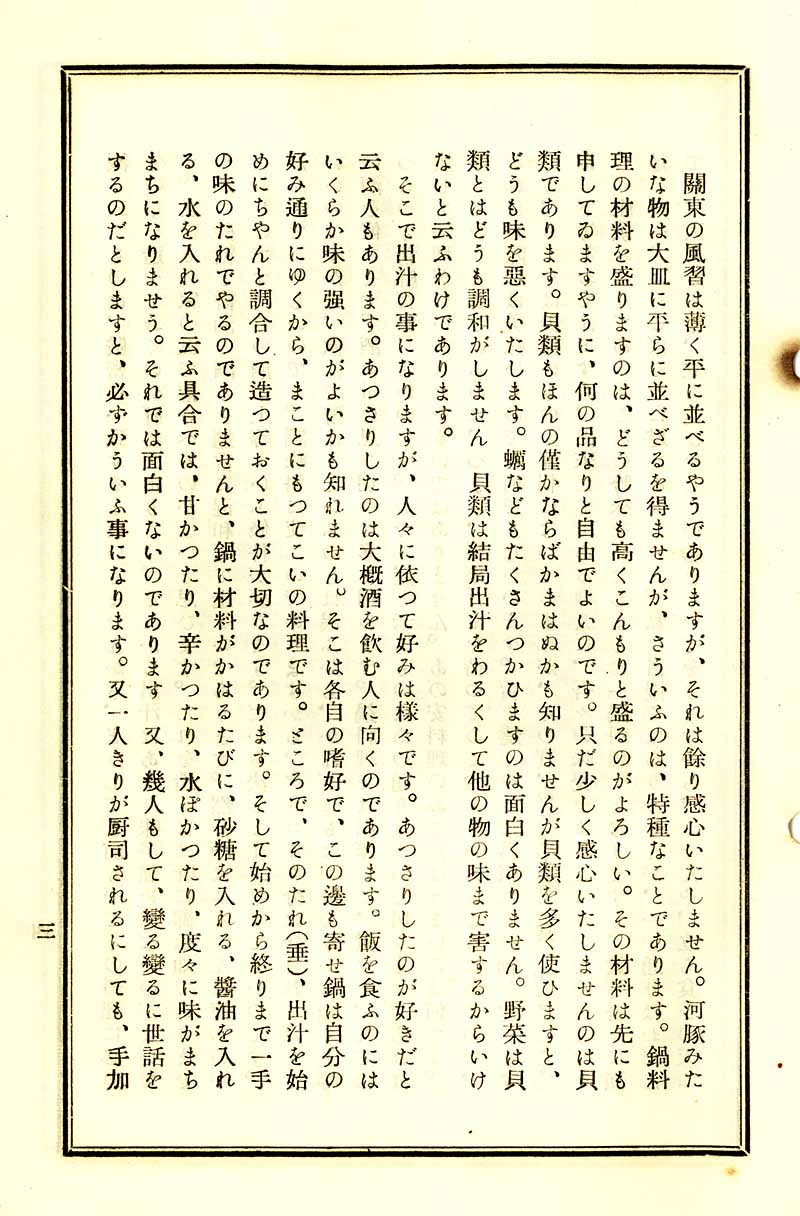 關東の風習は薄く平に並べるやうでありますが、それは餘り感心いたしません。河豚みた
いな物は大皿に平らに並べざるを得ませんが、さういふのは、特種なことであります。鍋料
理の材料を盛りますのは、どうしても高くこんもりと盛るのがよろしい。その材料は先にも
申してゐますやうに、何の品なりと自由でよいのです。只だ少しく感心いたしませんのは貝
類であります。貝類もほんの僅かならばかまはぬかも知りませんが貝類を多く使ひますと、
どうも味を惡くいたします。蠣などもたくさんつかひますのは面白くありません。野菜は貝
類とはどうも調和がしません　貝類は結局出汁をわるくして他の物の味まで害するからいけ
ないと云ふわけであります。
そこで出汁の事になりますが、人々に依つて好みは樣々です。あつさりしたのが好きだと
云ふ人もあります。あつさりしたのは大槪酒を飮む人に向くのであります。飯を食ふのには
いくらか味の强いのがよいかも知れません。そこは各自の嗜好で、この邊も寄せ鍋は自分の
好み通りにゆくから、まことにもつてこいの料理です。ところで、そのたれ(垂)、出汁を始
めにちやんと調合して造つておくことが大切なのであります。そして始めから終りまで一手
の味のたれでやるのでありませんと、鍋に材料がかはるたびに、砂糖を入れる、醬油を入れ
る、水を入れると云ふ具合では、甘かつたり、辛かつたり、水ぽかつたり、度々に味がまち
まちになりませう。それでは面白くないのであります　又、幾人もして、變る變るに世話を
するのだとしますと、必ずかういふ事になります。又一人きりが厨司されるにしても、手加
三